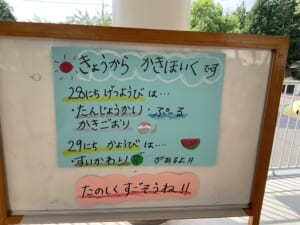 きょうから かきほいくです
28にち げつようびは…
・たんじょうかい ・ぷーる
かきごおり
29にち かようびは…
・すいかわり があるよ!!
たのしくすごそうね!!